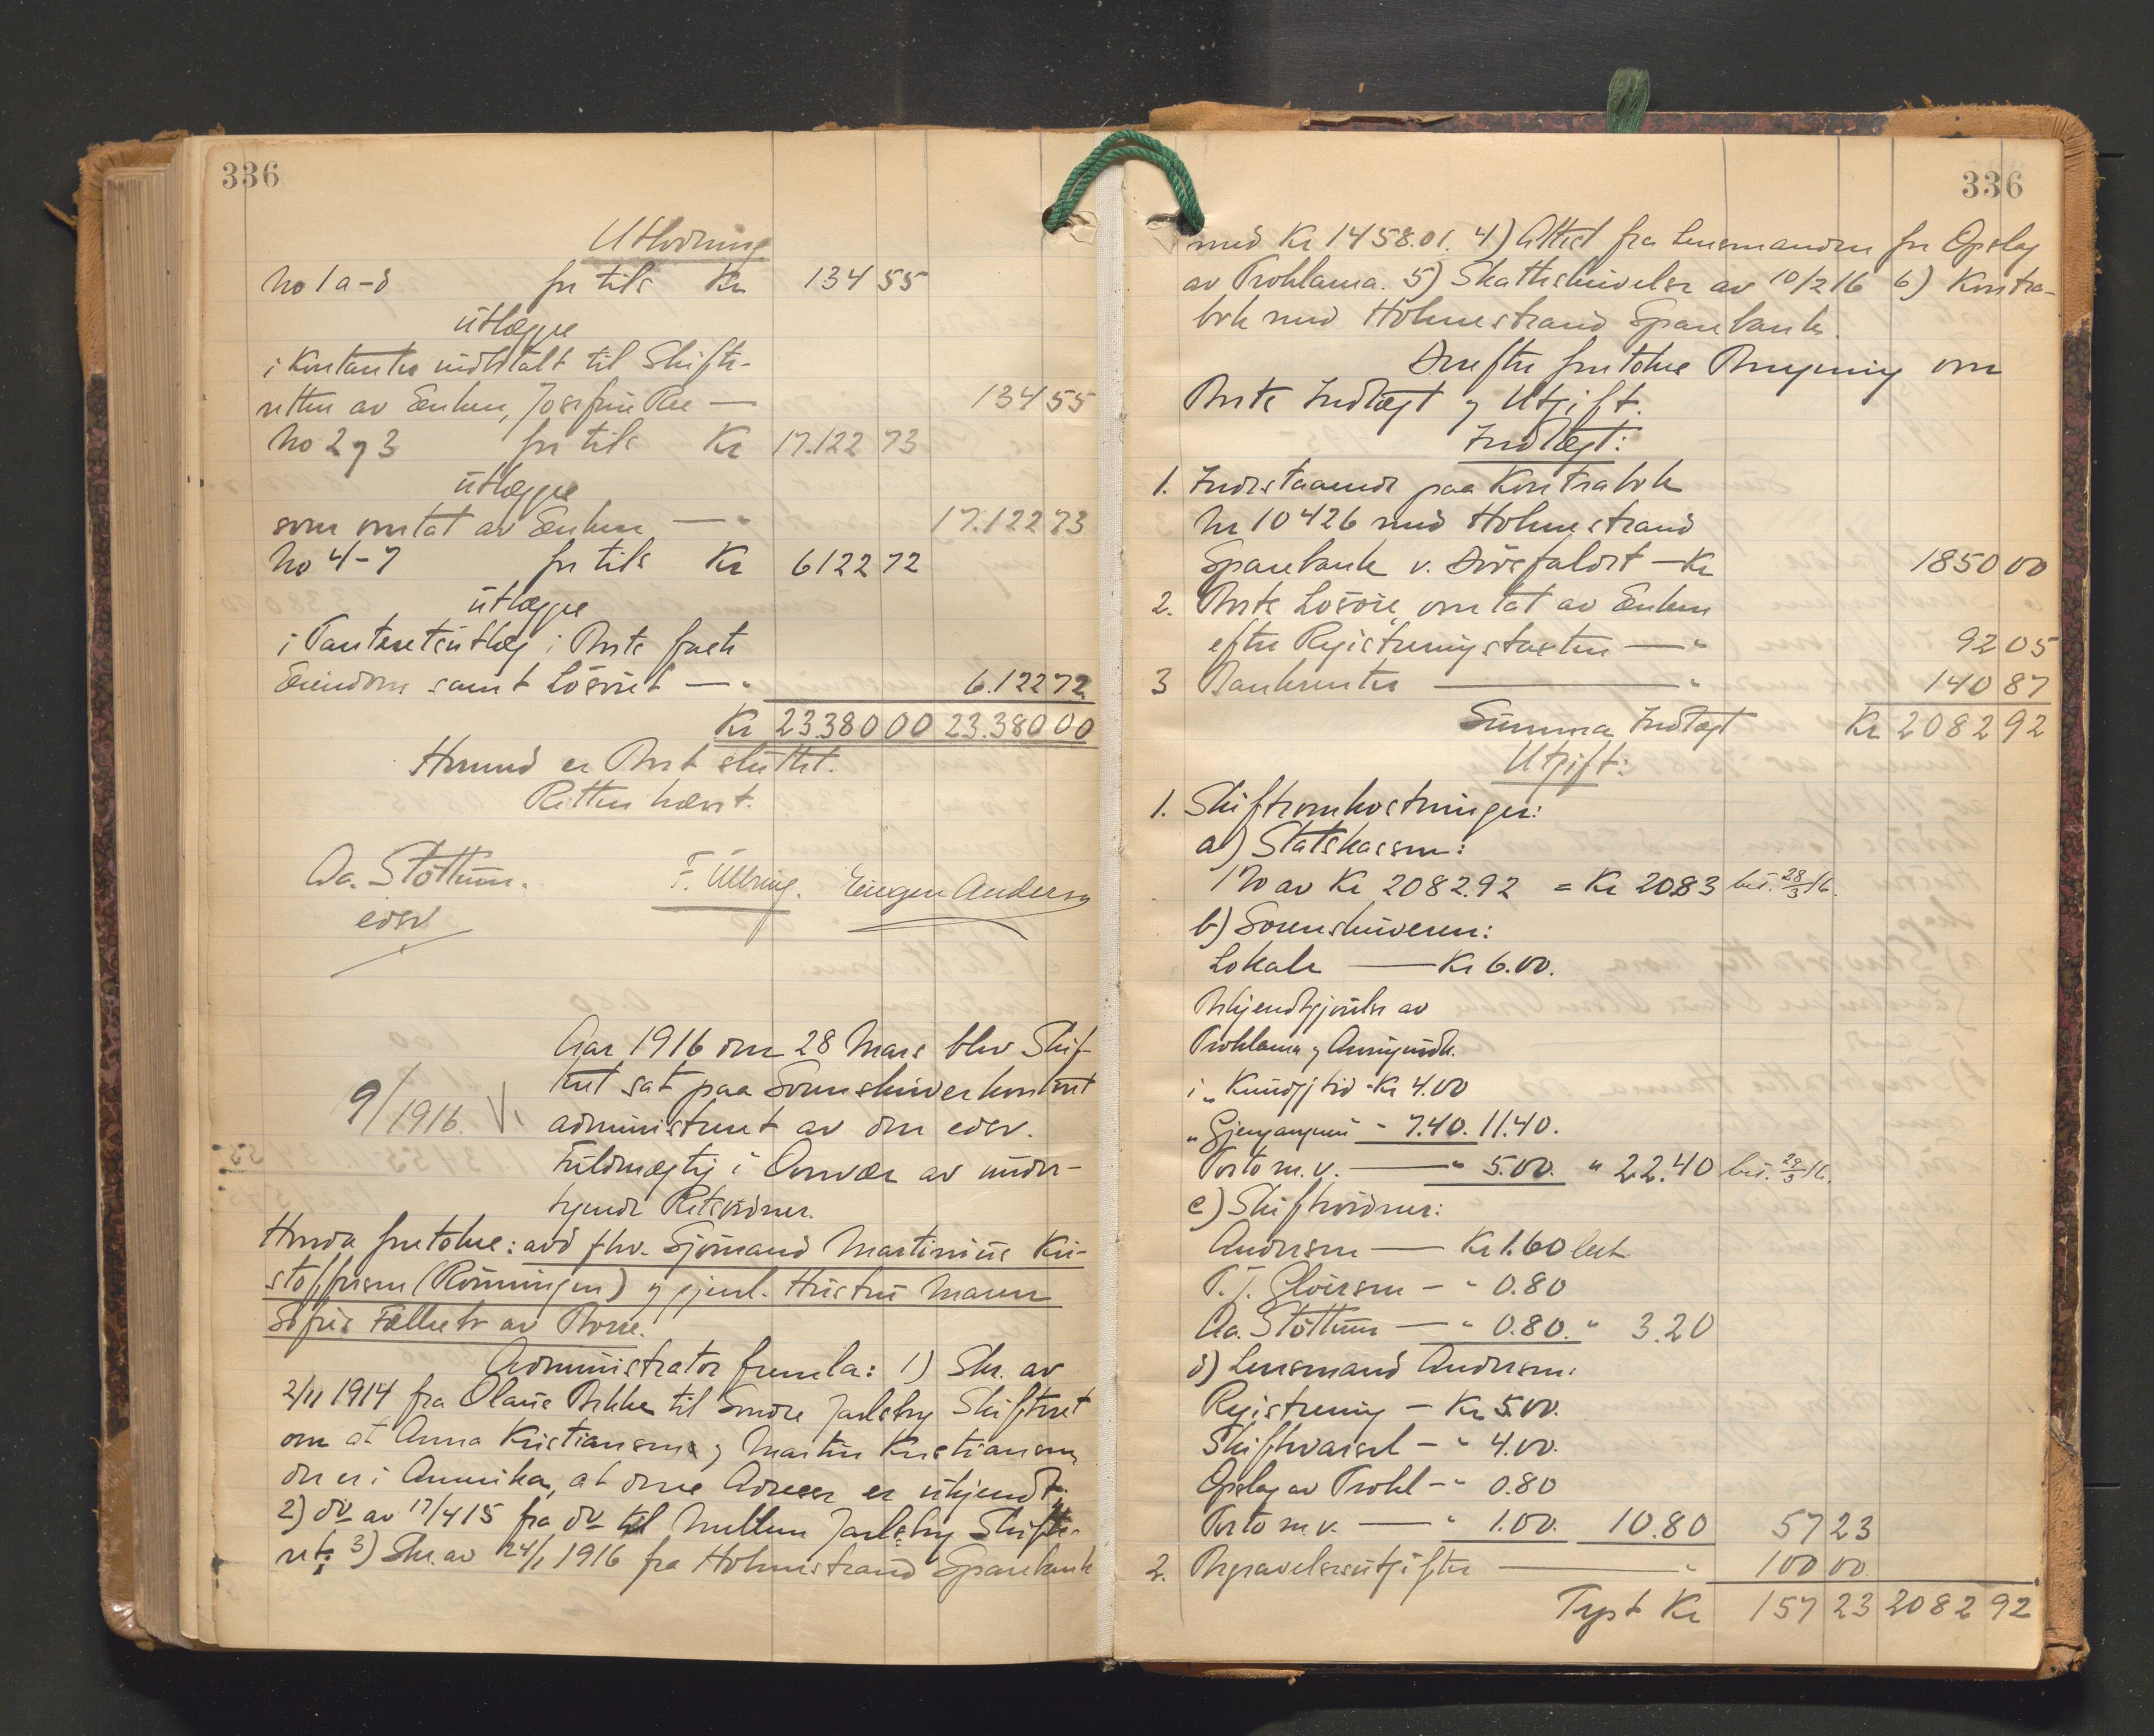 336
Utlodning
No 1 a-d før tils Kr 134 55
utlegges
i Kontanter indbetalt til Skifte-
retten av Enken, Josefine Ree — 134 55
No 2 og 3 før tils Kr 17.122 73
utlegges
som overtat av Enken — " 17.122 73
No 4-7 før tils Kr 6122 72
utlegges
i Panteretsutlæg i Boets faste
Eiendom samt Løsøret — " 6.122 72
Kr 23.380 00 23.380 00
Hermed er Boet sluttet.
Retten hævet.
Aa. Støttum. F. Ullring. Eugen Andersen
edsv
Aar 1916 den 28 Mars blev Skif-
9/1916. teret sat paa Sorenskriverkontoret
administreret av den edsv.
Fuldmægtig i Overvær av under-
tegnede Retsvidner.
Herda foretokes: avd fhv. Sjømand Martinius Kri-
stoffersen (Rønningen) og gjenl. Hustru Maren
Sofies Fællesbo av Borre.
Administrator fremla: 1) Skr. av
2/11 1914 fra Olaus Bekke til Søndre Jarlsberg Skifteret
om at Anna Kristiansen og Martin Kristiansen
der er i Amerika, at deres Adresse er ukjendt.
2) do av 17/4 15 fra do til Mellem Jarlsberg Skifte-
ret. 3) Skr. av 24/1 1916 fra Holmestrand Sparebank
336
med Kr 1458.01. 4) Attest fra Lensmanden for Opslag
av Proklama. 5) Skatteskrivelse av 10/2 16 6) Kontra-
bok med Holmestrand Sparebank.
Derefter foretokes Beregning over
Boets Indtægt og Utgift.
Indtægt:
1. Indestaaende paa Kontrabok
Nr 10426 med Holmestrand
Sparebank v. Dødsfaldet — Kr 1850 00
2. Boets Løsøre, overtat av Enken
efter Registreringstaksten — " 92 05
3 Bankrenter — " 140 87
Summa Indtægt Kr 2082 92
Utgift:
1. Skifteomkostninger:
a) Statskassen:
1% av Kr 2082.92 = Kr 20.83 bet. 28/3 16.
b) Sorenskriveren:
Lokale — Kr 6.00.
Bekjendtgjørelse av
Proklama og
i „Kundgj tid" Kr 4.00
„Gjengangeren" - 7.40. 11.40.
Porto m. v. — " 5.00. " 22.40 bet. 29/3 16.
c) Skiftevidner:
Andersen — Kr 1.60 bet
P. J. — " 0.80
Aa. Støttum — " 0.80. " 3.20
d) Lensmand Andersen:
Registrering — Kr 5.00.
Skiftevarsel — " 4.00.
Opslag av Prokl — " 0.80
Porto m. v. — " 1.00. 10.80 57 23
2. Begravelsesutgifter — " 100 00
Trpt Kr 157 23 2082 92